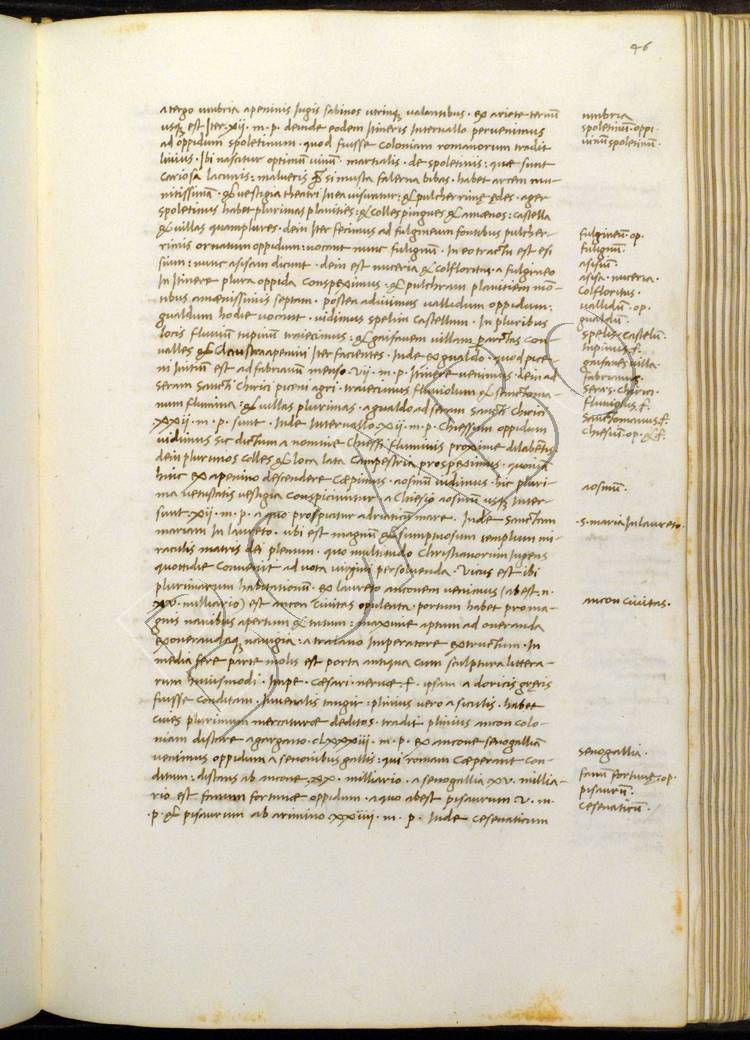 46
a tergo umbria apeninis iugis sabinos utrinq; valantibus · ex ariete ternũ
usq; est Iter · xii · m · p · deinde eodem itineris intervallo pervenimus
ad oppidum spoletinum · quod fuisse coloniam romanorum tradit
livius · Ibi nascitur optimũ vinũ · martialis · de spoletinis : que sunt
cariosa lacunis : malueris si musta falerna bibas · habet arcem mu-
nitissimã · & vestigia theatri in ea visuntur : & pulcherrimę ędes · ager
spoletinus habet plurimas planities : & colles pingues & amœnos : castella
& villas quamplures · dein Iter fecimus ad fulgineum fontibus pulcher-
rimis ornatum oppidum : vocant nunc fuliginũ · In eo tractu est esi
sium : nunc asisam dicunt · dein est nuceria & colfloritus · a fulgineo
In itinere plura oppida conspeximus · & pulchram planitiem mõ-
tibus amœnissimis septam · postea adivimus vallidum oppidum :
gualdum hodie vocant · vidimus spelim castellum · In pluribus
locis fluviũ tupinũ traiecimus · & gaifanem villam per con
valles & claustra apenini iter facientes · Inde ex gualdo · quod pice
ni initiũ est ad fabrianũ menso · vii · m · p · itinere venimus · dein ad
seram sancti chirici piceni agri · traiecimus fluviolum & sanctoma
num flumina : & villas plurimas · a gualdo ad seram sancti chirici
xxii · m · p · sunt · Inde Intervallo · xii · m · p · chiesium oppidum
vidimus sic dictum a nomine chiesii fluminis proxime dilabẽtis
dein plurimos colles & loca lata campestria prospeximus · quoniã
hinc ex apenino descendere cæpimus · aosmũ vidimus · hic pluri
ma vetustatis vestigia conspiciuntur a chiesio aosmũ usq; Inter
sunt · xii · m · p · a quo prospiciatur adriaticũ mare · Inde sanctam
mariam in laureto · ubi est magnũ & sumptuosum templum mi-
raculis matris dei plenum · quo multitudo christianorum Ingens
quottidie convenit ad vota virgini persolvenda · Vicus est ibi
plurimarum habitationũ · ex laureto anconem venimus (abest ·
xv · milliario) est ancon civitas opulenta · portum habet proma-
gnis navibus apertum & tutum : maxime aptum ad oneranda
exonerandaq; navigia : a traiano imperatore extructum · In
media fere parte molis est porta antiqua cum sculptura littera-
rum huiusmodi · Impe · Cæsari · nervæ · f · ipsam a doricis gręcis
fuisse conditam · Iuvenalis tangit : plinius vero a siculis · habet
cives plurimum mercaturæ deditos · tradit plinius ancon colo-
niam distare a gargano · clxxxiii · m · p · ex ancone senogalliã
venimus oppidum a senonibus gallis : qui romam cæperant con-
ditum : distans ab ancone · xx · milliario · a senogallia xv · millia-
rio est fanum fortunæ oppidum · a quo abest pisaurum v · m ·
· p · & pisaurum ab arimino xxiiii · m · p · Inde cesenaticum
umbria
spoletinũ · oppi ·
vinũ spoletinũ ·
fulgineũ · op ·
fuliginũ ·
asisiũ ·
asisa · nuceria ·
Colfloritus ·
vallidũ · op ·
gualdũ ·
spelis · castellũ ·
tupinus · f ·
gaifanes villa ·
fabrianus ·
seras · chirici ·
fluviolus · f ·
Sanctomanus · f ·
chiesiũ · op · & f ·
aosmũ ·
· s · maria In laureto ·
ancon civitas ·
senogallia ·
fanũ fortunę · op ·
pisaurũ ·
cesenaticũ ·